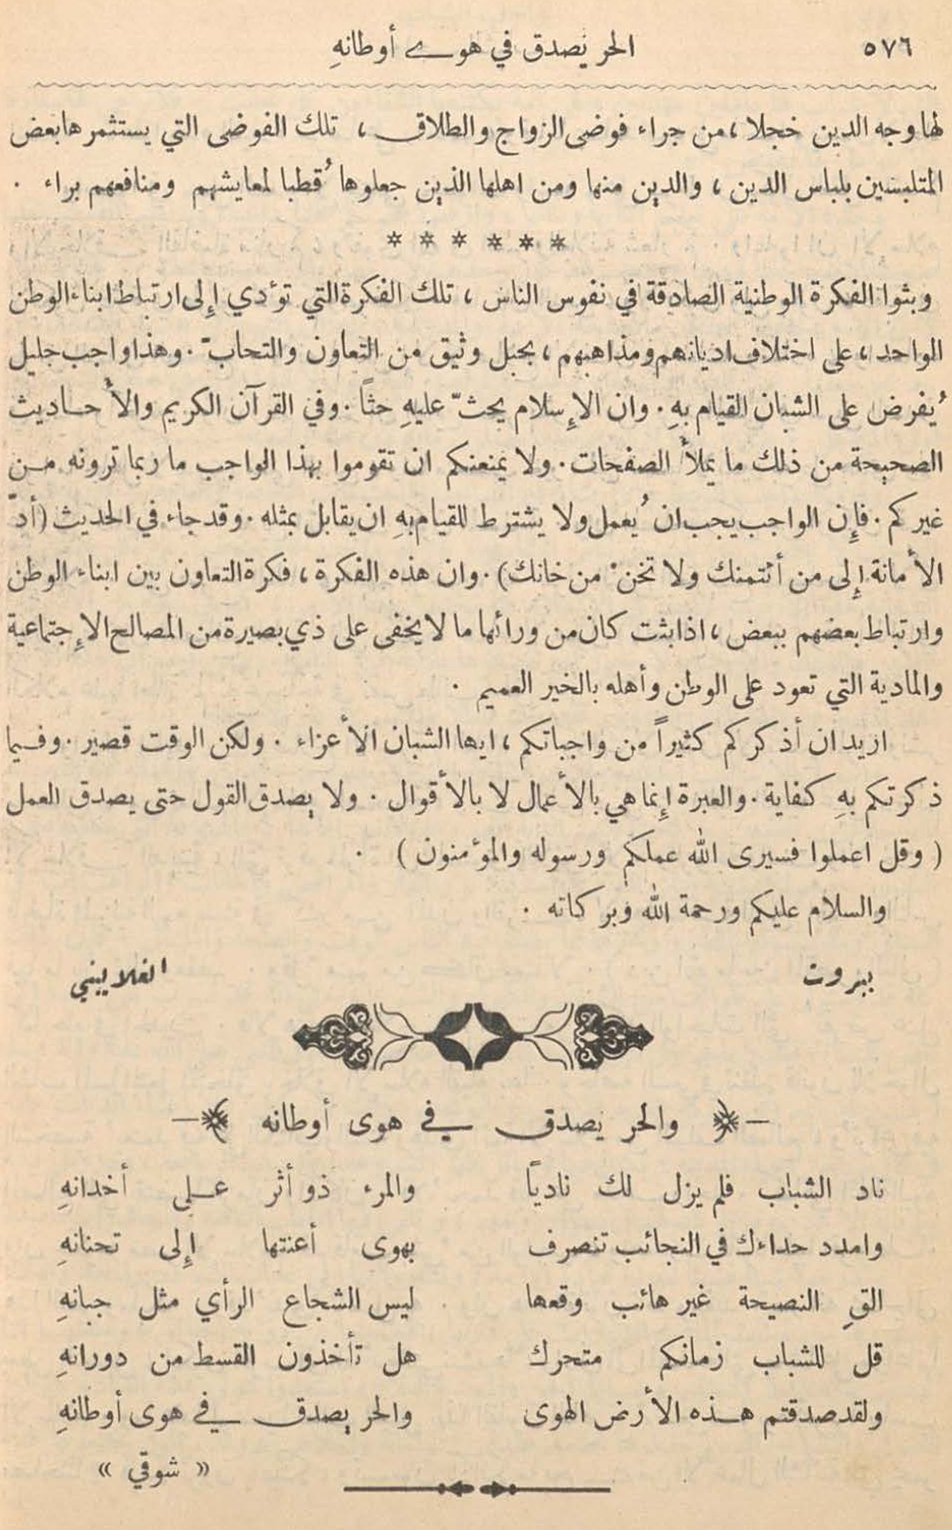 ٥٧٦ الحر يصدق في هوى أوطانهِ
لها وجه الدين خجلا ، من جراء فوضى الزواج والطلاق ، تلك الفوضى التي يستثمرها بعض
المتلبسين بلباس الدين ، والدين منها ومن اهلها الذين جعلوها قُطبا لمعايشهم ومنافعهم براء .
* * * * * *
وبثوا الفكرة الوطنية الصادقة في نفوس الناس ، تلك الفكرة التي تؤدي إلى ارتباط ابناء الوطن
الواحد ، على اختلاف اديانهم ومذاهبهم ، بحبل وثيق من التعاون والتحابّ . وهذا واجب جليل
يُفرض على الشبان القيام بهِ . وان الإسلام يحثّ عليهِ حثاً . وفي القرآن الكريم والأحاديث
الصحيحة من ذلك ما يملأ الصفحات . ولا يمنعنكم ان تقوموا بهذا الواجب ما ربما ترونه من
غيركم . فإن الواجب يجب ان يُعمل ولا يشترط للقيام بهِ ان يقابل بمثله . وقد جاء في الحديث ( أدّ
الأمانة إلى من أئتمنك ولا تخنْ من خانك ) . وان هذه الفكرة ، فكرة التعاون بين ابناء الوطن
وارتباط بعضهم ببعض ، اذا بثت كان من ورائها ما لا يخفى على ذي بصيرة من المصالح الإجتماعية
والمادية التي تعود على الوطن وأهله بالخير العميم .
اريد ان أذكركم كثيراً من واجباتكم ، ايها الشبان الأعزاء . ولكن الوقت قصير . وفيما
ذكرتكم بهِ كفاية . والعبرة إنما هي بالأعمال لا بالأقوال . ولا يصدق القول حتى يصدق العمل
( وقل اعملوا فسيرى الله عملكم ورسوله والمؤمنون ) .
والسلام عليكم ورحمة الله وبركاته .
بيروت الغلاييني
والحر يصدق في هوى أوطانه
ناد الشباب فلم يزل لك نادياً والمرء ذو أثر على أخدانهِ
وامدد حداءك في النجائب تنصرف بهوى أعنتها إلى تحنانهِ
القِ النصيحة غير هائب وقعها ليس الشجاع الرأي مثل جبانهِ
قل للشباب زمانكم متحرك هل تأخذون القسط من دورانهِ
ولقد صدقتم هذه الأرض الهوى والحر يصدق في هوى أوطانهِ
« شوقي »